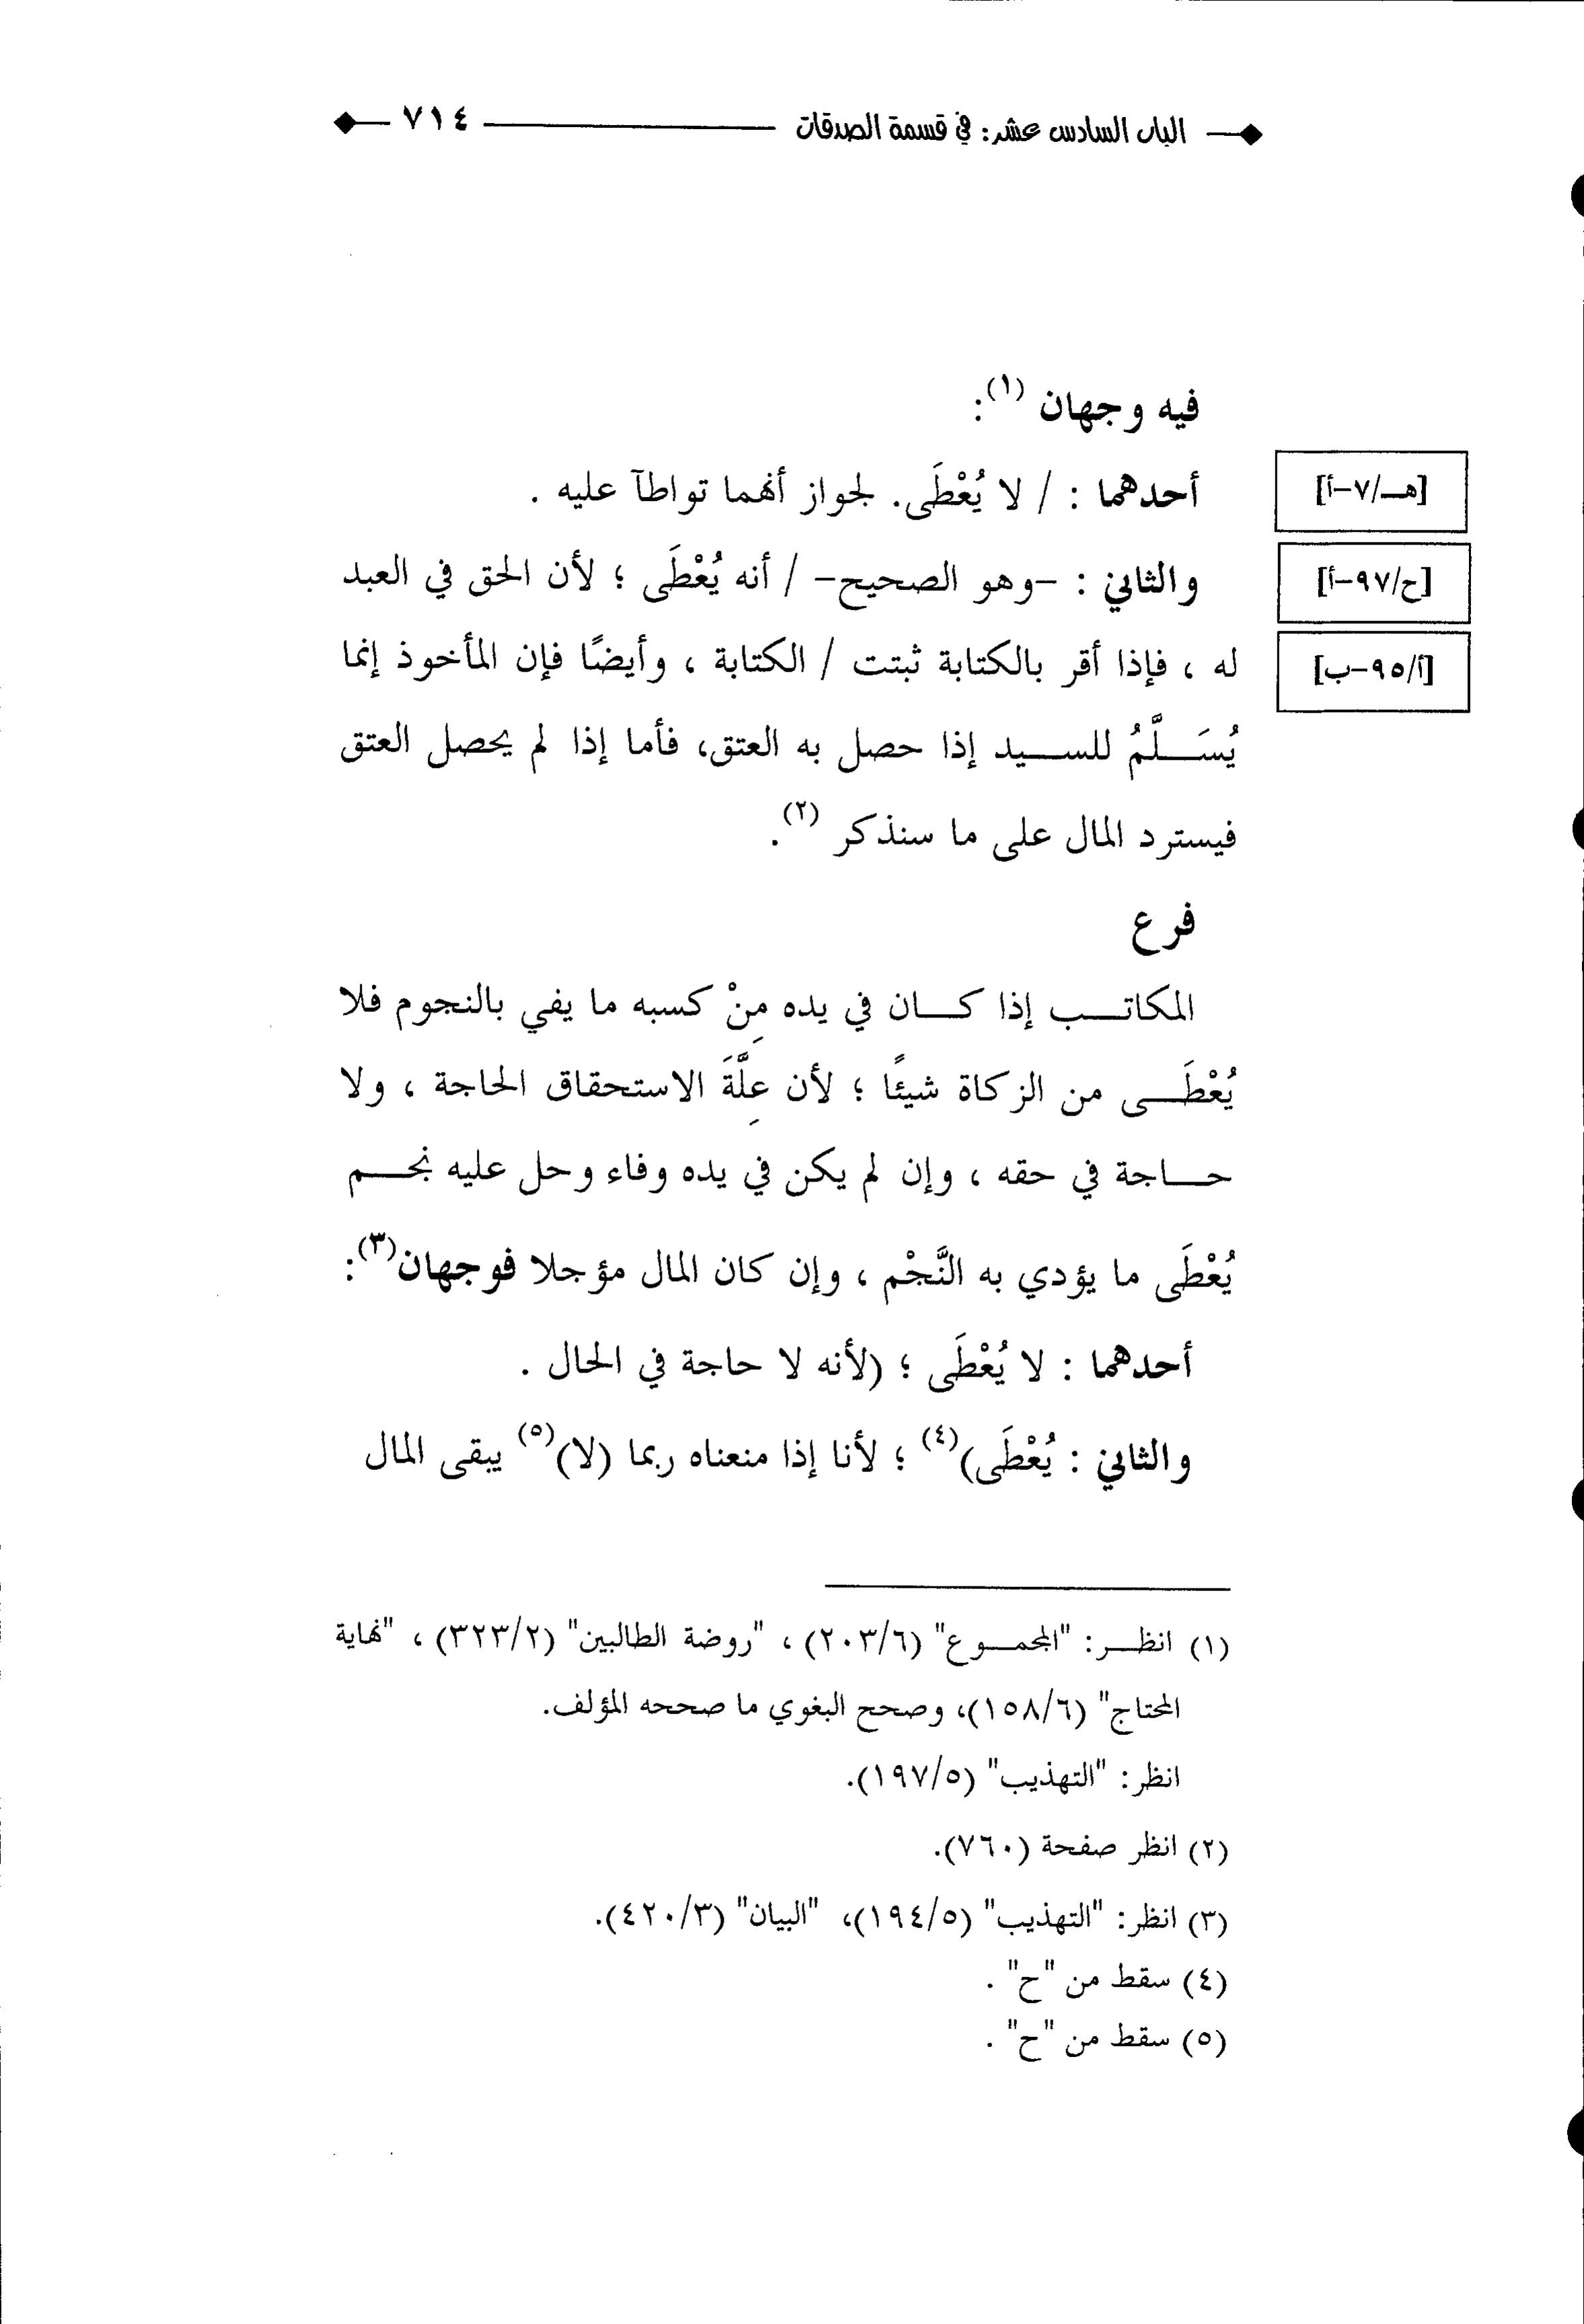 الباب السادس عشر: في قسمة الصدقات ٧١٤
فيه وجهان (١):
أحدهما : / لا يُعْطَى. لجواز أنهما تواطآ عليه .
[هـ/٧-أ]
والثاني : -وهو الصحيح- / أنه يُعْطَى ؛ لأن الحق في العبد
[ح/٩٧-أ]
له ، فإذا أقر بالكتابة ثبتت / الكتابة ، وأيضًا فإن المأخوذ إنما
[أ/٩٥-ب]
يُسَلَّمُ للسيد إذا حصل به العتق، فأما إذا لم يحصل العتق
فيسترد المال على ما سنذكر (٢).
فرع
المكاتب إذا كان في يده مِنْ كسبه ما يفي بالنجوم فلا
يُعْطَى من الزكاة شيئًا ؛ لأن عِلَّةَ الاستحقاق الحاجة ، ولا
حاجة في حقه ، وإن لم يكن في يده وفاء وحل عليه نجم
يُعْطَى ما يؤدي به النَّجْم ، وإن كان المال مؤجلا فوجهان(٣):
أحدهما : لا يُعْطَى ؛ (لأنه لا حاجة في الحال .
والثاني : يُعْطَى)(٤) ؛ لأنا إذا منعناه ربما (لا)(٥) يبقى المال
(١) انظر: "المجموع" (٢٠٣/٦) ، "روضة الطالبين" (٣٢٣/٢) ، "نهاية
المحتاج" (١٥٨/٦)، وصحح البغوي ما صححه المؤلف.
انظر: "التهذيب" (١٩٧/٥).
(٢) انظر صفحة (٧٦٠).
(٣) انظر: "التهذيب" (١٩٤/٥)، "البيان" (٤٢٠/٣).
(٤) سقط من "ح" .
(٥) سقط من "ح" .